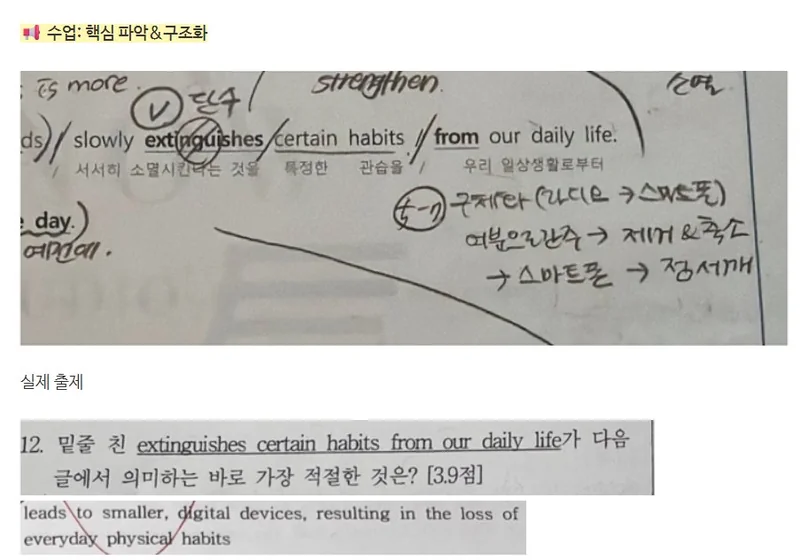 수업: 핵심 파악&구조화
is more. strengthen. 소멸
V 단수
ds) / slowly extinguishes / certain habits // from our daily life.
서서히 소멸시킨다는 것을 특정한 관습을 / 우리 일상생활로부터
e day.)
예전에.
5-7 구체화 (라디오 → 스마트폰)
여분으로 간주 → 제거 & 축소
→ 스마트폰 → 정서깨
실제 출제
12. 밑줄 친 extinguishes certain habits from our daily life가 다음
글에서 의미하는 바로 가장 적절한 것은? [3.9점]
leads to smaller, digital devices, resulting in the loss of
everyday physical habits